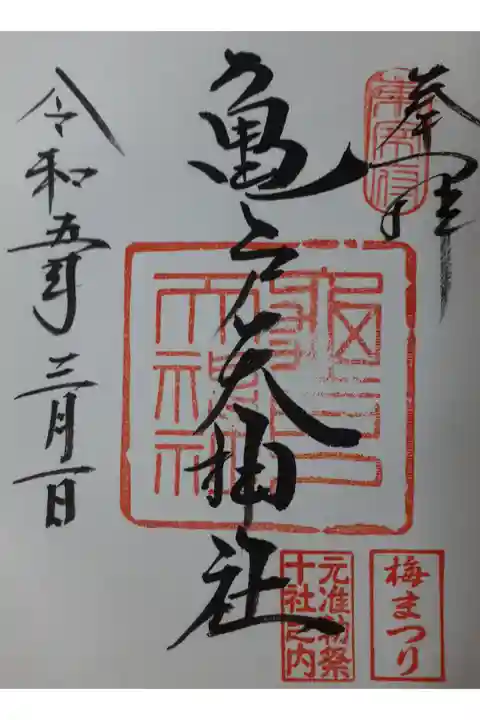 奉拝
亀戸天神社
令和五年三月一日
元准勅祭
十社之内
梅まつり